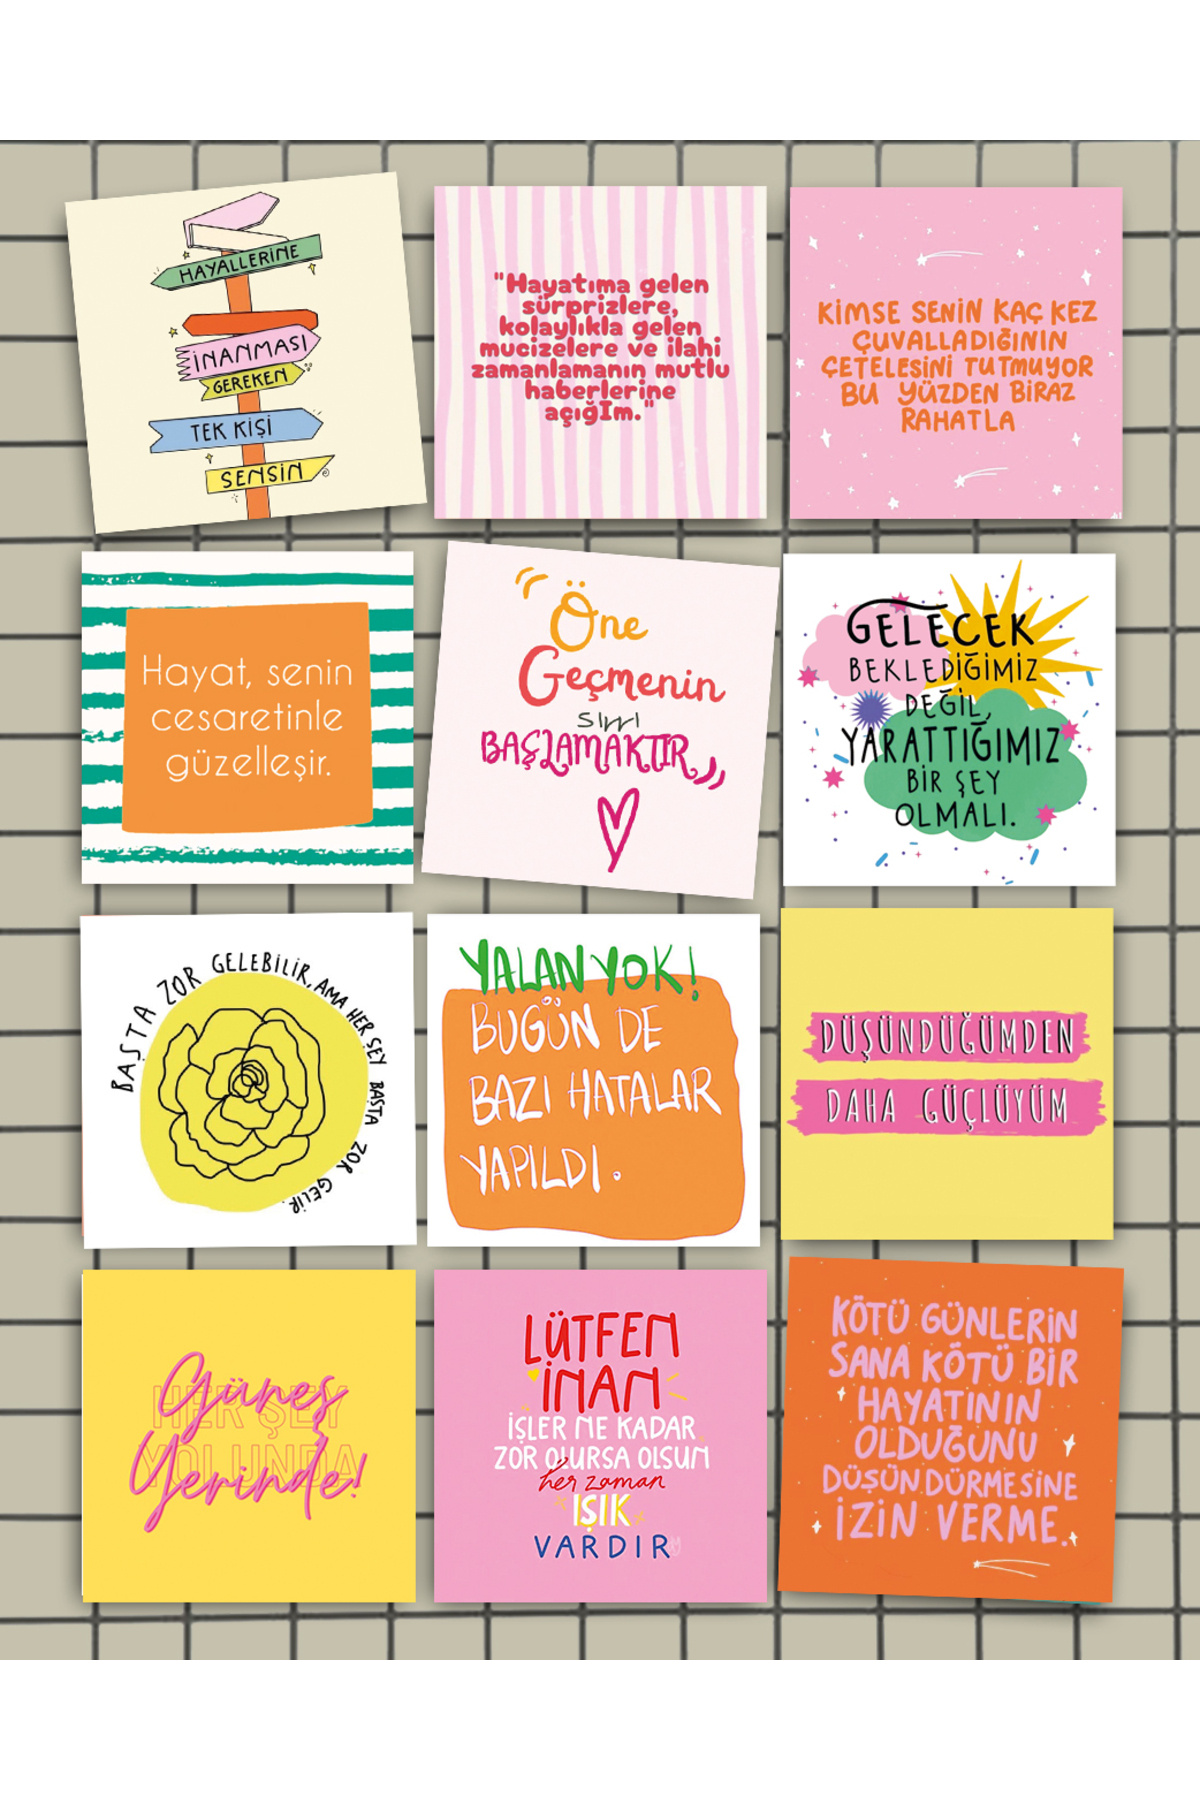 HAYALLERİNE
İNANMASI
GEREKEN
TEK KİŞİ
SENSİN
"Hayatıma gelen
sürprizlere,
kolaylıkla gelen
mucizelere ve ilahi
zamanlamanın mutlu
haberlerine
açığIm."
KİMSE SENİN KAÇ KEZ
ÇUVALLADIĞININ
ÇETELESİNİ TUTMUYOR
BU YÜZDEN BİRAZ
RAHATLA
Hayat, senin
cesaretinle
güzelleşir.
"Öne
Geçmenin
sırrı
BAŞLAMAKTIR"
GELECEK
BEKLEDİĞİMİZ
DEĞİL,
YARATTIĞIMIZ
BİR ŞEY
OLMALI.
BAŞTA ZOR GELEBİLİR, AMA HER ŞEY BAŞTA ZOR GELİR.
YALAN YOK!
BUGÜN DE
BAZI HATALAR
YAPILDI.
DÜŞÜNDÜĞÜMDEN
DAHA GÜÇLÜYÜM
Güneş
HER ŞEY
Yerinde!
YOLUNDA
LÜTFEN
İNAN
İŞLER NE KADAR
ZOR OLURSA OLSUN
her zaman
IŞIK
VARDIR
KÖTÜ GÜNLERİN
SANA KÖTÜ BİR
HAYATININ
OLDUĞUNU
DÜŞÜNDÜRMESİNE
İZİN VERME.